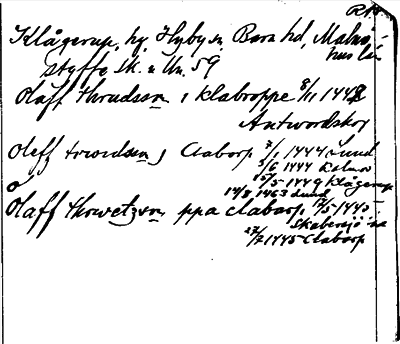 RAp
Klågerup, hg, Hyby sn, Bara hd, Malmö-
hus län
Styffe Sk. u. Un. 59
Olaff Thrudssøn i Klabroppe 8/11 1442
Antwordskov
Oleff trwdsøn j Claborp 7/1 1444 Lund
3/6 1444 Kalmar
15/5 1449 Klågerup
14/8 1463 Lund
Olaff Thrwetzøn ppa clabarp 17/5 1445
Skabersjö sn
27/7 1445 Claborp